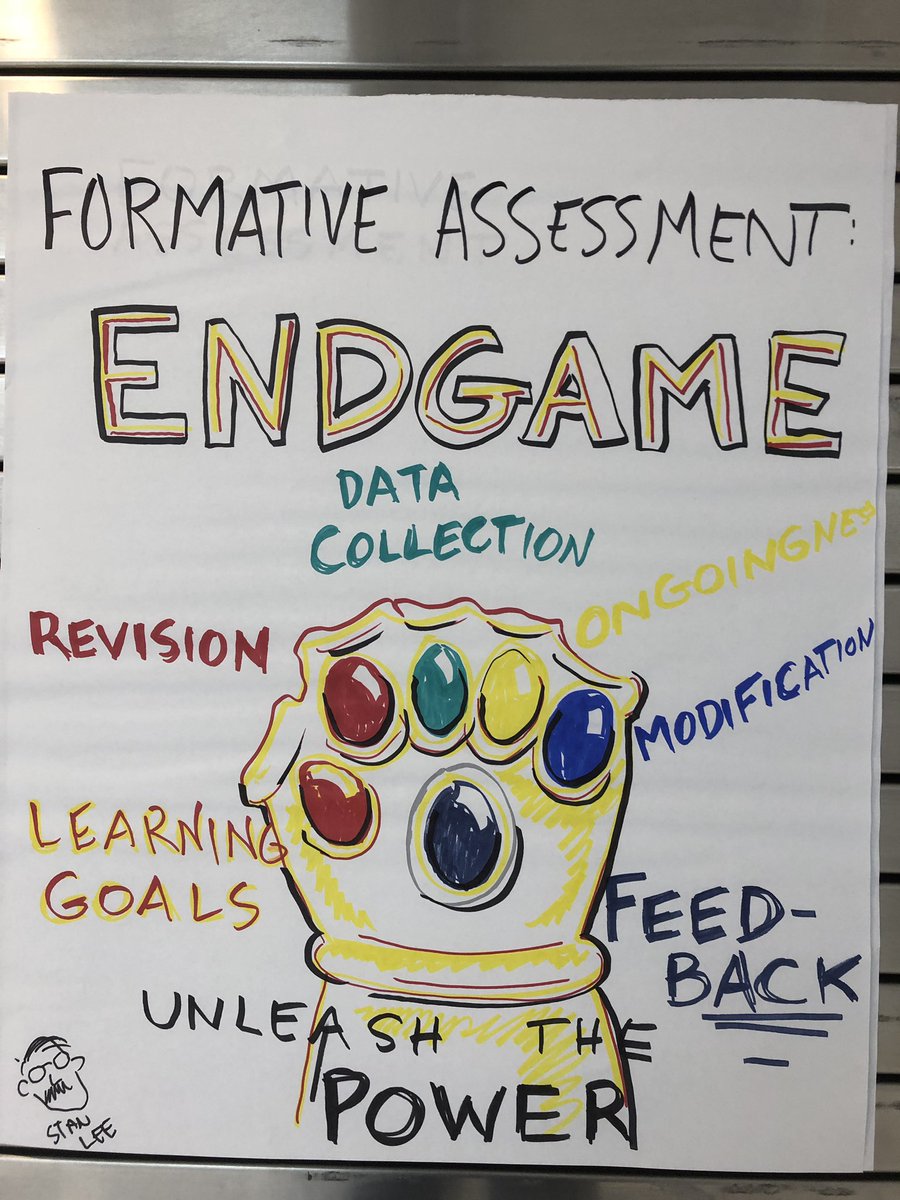 FORMATIVE ASSESSMENT:
ENDGAME
DATA
COLLECTION
ONGOINGNESS
REVISION
MODIFICATION
LEARNING
GOALS
FEED-
BACK
UNLEASH THE
POWER
STAN
LEE